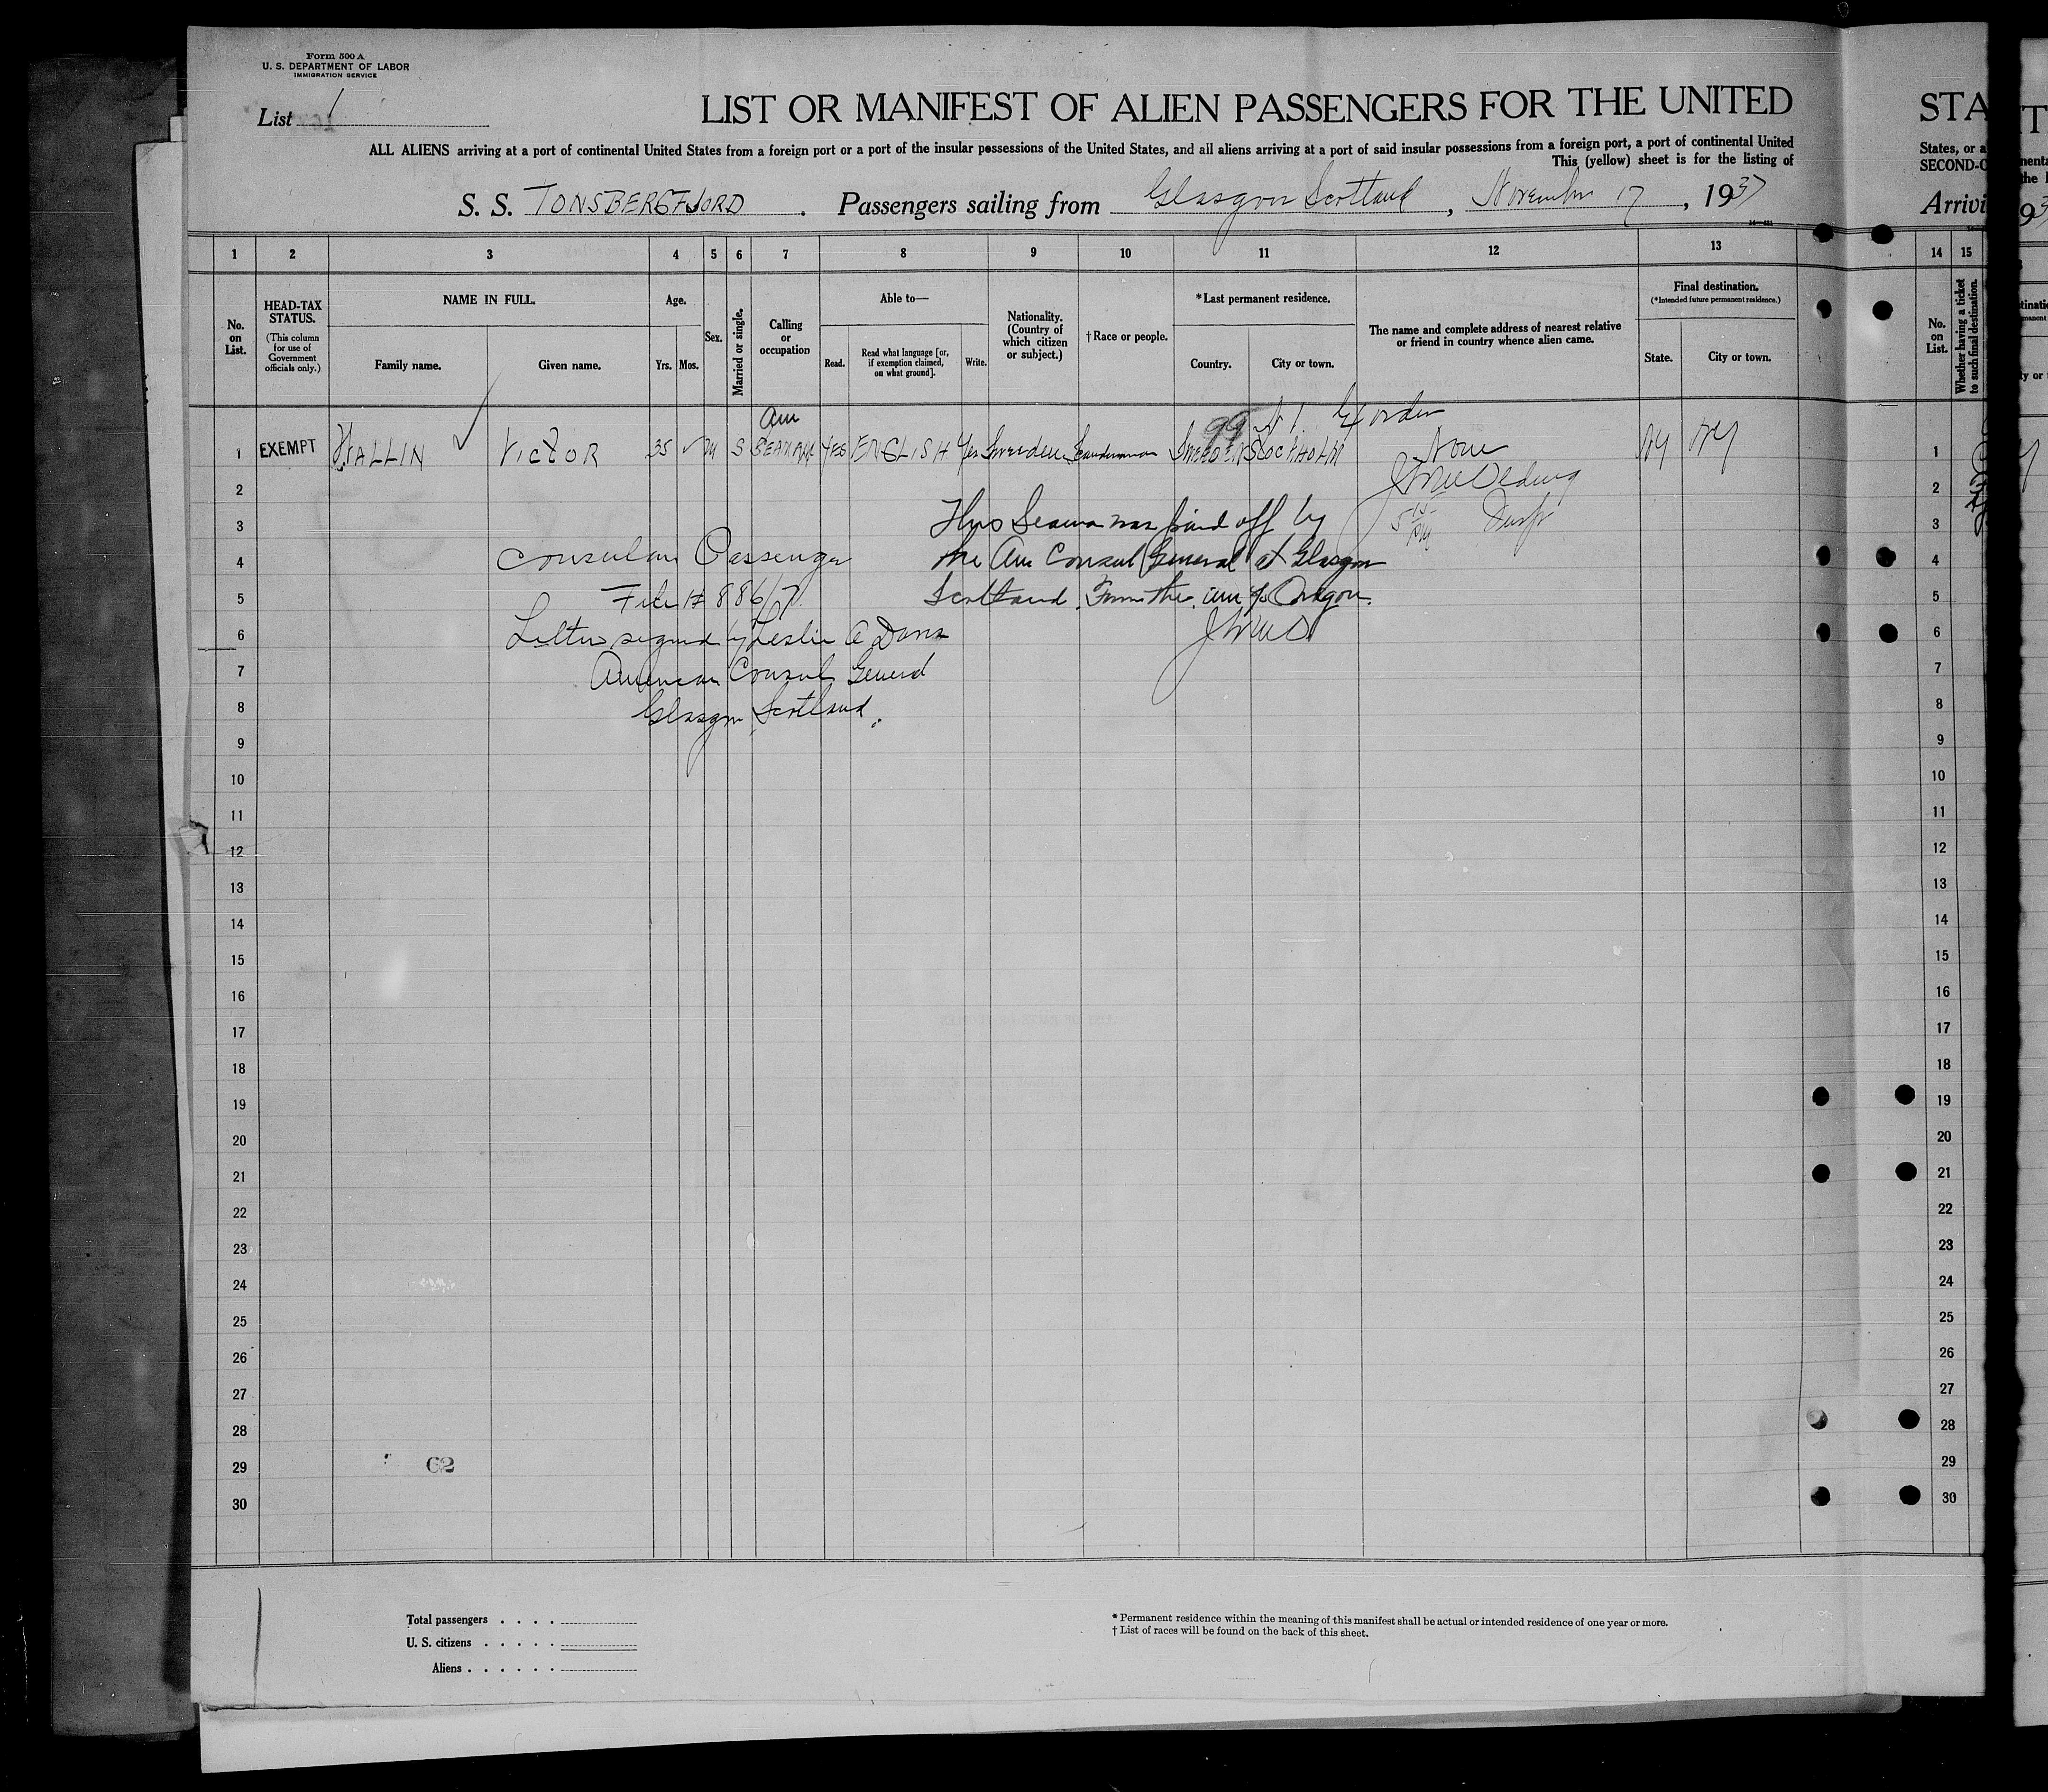 Form 500 A
U. S. DEPARTMENT OF LABOR
IMMIGRATION SERVICE
List 1
LIST OR MANIFEST OF ALIEN PASSENGERS FOR THE UNITED
ALL ALIENS arriving at a port of continental United States from a foreign port or a port of the insular possessions of the United States, and all aliens arriving at a port of said insular possessions from a foreign port, a port of continental United
This (yellow) sheet is for the listing of
S. S. TONSBERGFJORD . Passengers sailing from Glasgow Scotland , November 17 , 1937
STA
States, or a
SECOND-C
Arrivi
1 2 3 4 5 6 7 8 9 10 11 12 13 14 15
No. on List.
HEAD-TAX STATUS.
(This column for use of Government officials only.)
NAME IN FULL.
Family name.
Given name.
Age.
Yrs.
Mos.
Sex.
Married or single.
Calling or occupation
Able to—
Read.
Read what language [or, if exemption claimed, on what ground].
Write.
Nationality. (Country of which citizen or subject.)
† Race or people.
*Last permanent residence.
Country.
City or town.
The name and complete address of nearest relative or friend in country whence alien came.
Final destination.
(*Intended future permanent residence.)
State.
City or town.
No. on List.
Whether having a ticket to such final destination.
Am
99
1 EXEMPT WALLIN VICTOR 35 M S SEAMAN YES ENGLISH Yes Sweden Scandinavian SWEDEN STOCKHOLM None NY NY 1
2 2
This Seaman was paid off by
3 3
Consular Passenger the Am Consul General at Glasgow
4 4
File # 886/7 Scotland. From the Am
5 5
Letter signed by Leslie A Davis
6 6
American Consul General
7 7
Glasgow, Scotland.
8 8
9 9
10 10
11 11
12 12
13 13
14 14
15 15
16 16
17 17
18 18
19 19
20 20
21 21
22 22
23 23
24 24
25 25
26 26
27 27
28 28
29 62 29
30 30
Total passengers . . . .
U. S. citizens . . . . .
Aliens . . . . . .
* Permanent residence within the meaning of this manifest shall be actual or intended residence of one year or more.
† List of races will be found on the back of this sheet.